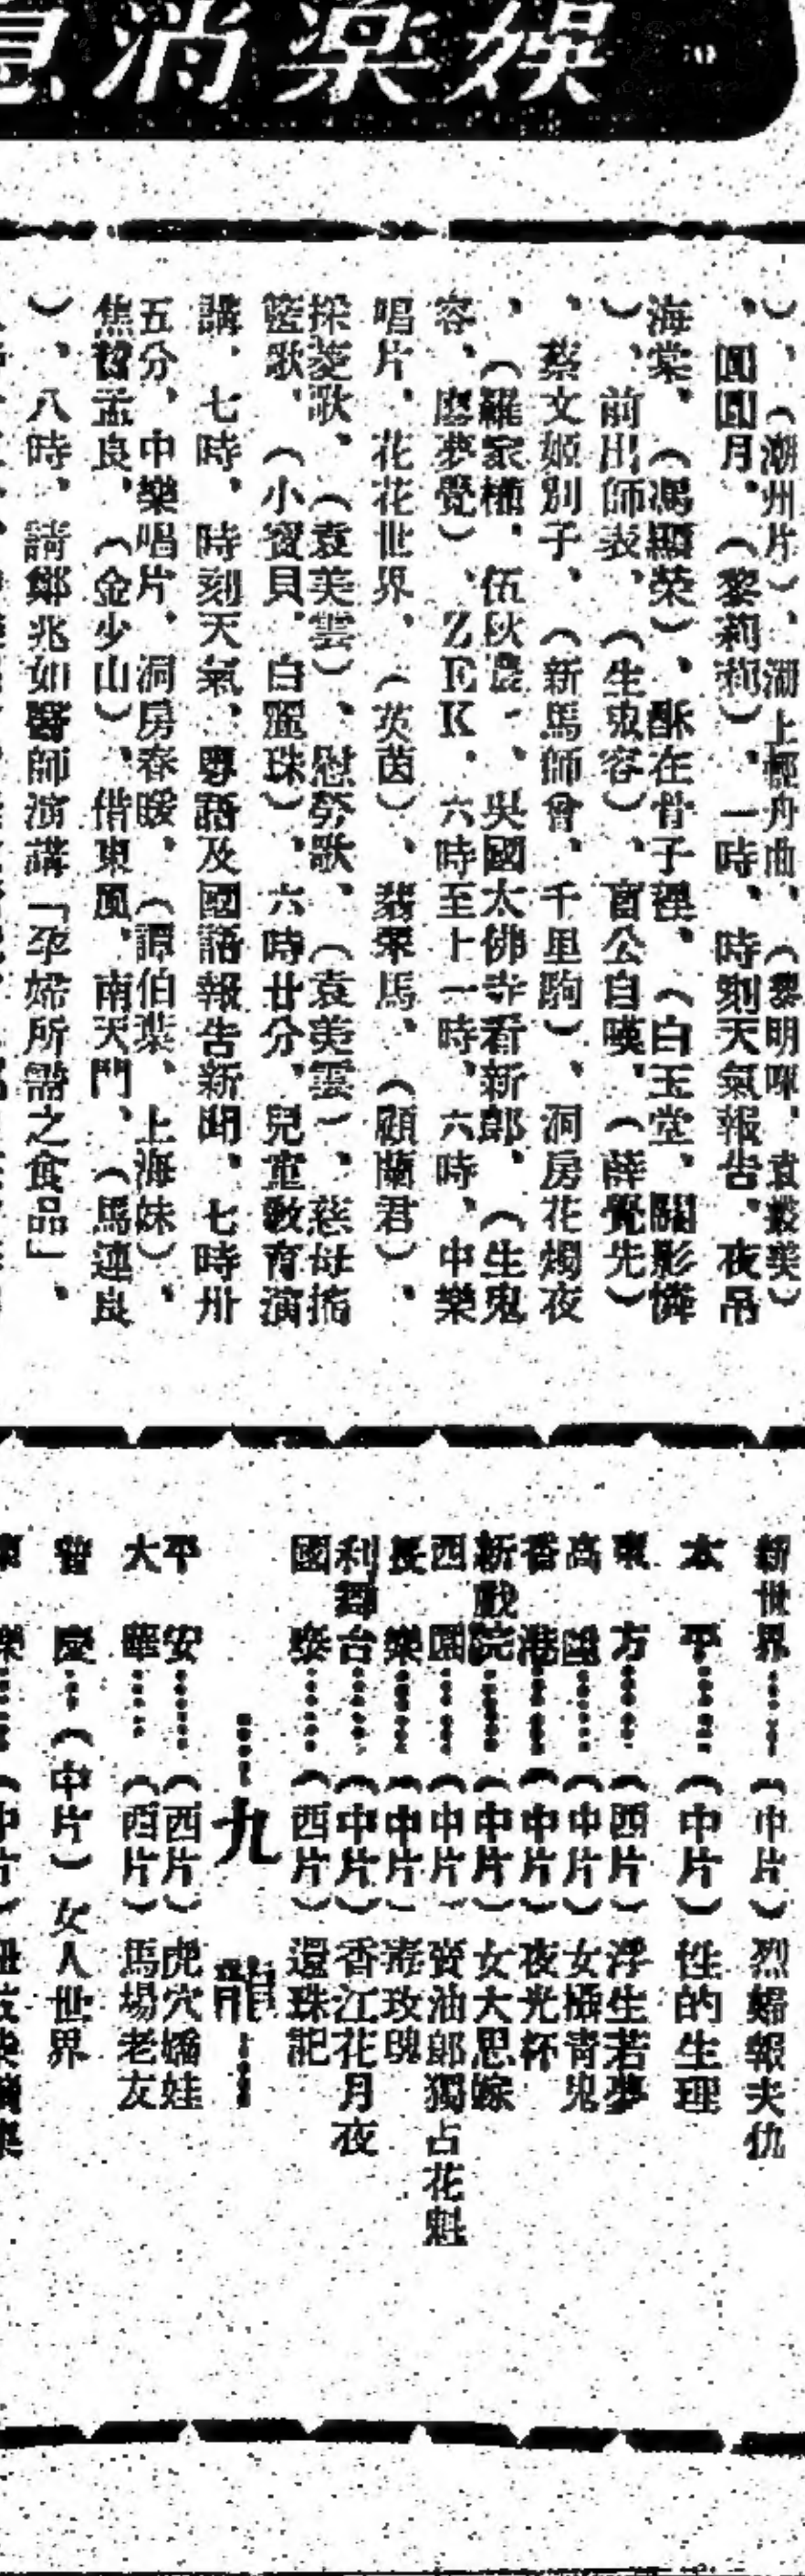 娛楽消息
）、（潮州片）、湖上輕舟曲、（黎明暉、袁叢美）
、圓圓月、（黎莉莉）、一時、時刻天氣報告、夜吊
海棠、（馮顯榮）、酥在骨子裡、（白玉堂、關影憐
）、前出師表、（生鬼容）、盲公自嘆、（薛覺先）
、蔡文姬別子、（新馬師曾、千里駒）、洞房花燭夜
、（羅家權、伍秋儂）、吳國太佛寺看新郎、（生鬼
容、廖夢覺）、ZEK、六時至十一時、六時、中樂
唱片、花花世界、（英茵）、翡翠馬、（顧蘭君）、
採菱歌、（袁美雲）、慰勞歌、（袁美雲）、慈母搖
籃歌、（小寶貝、白麗珠）、六時廿分、兒童教育演
講、七時、時刻天氣、粵語及國語報告新聞、七時卅
五分、中樂唱片、洞房春暖、（譚伯葉、上海妹）、
焦贊孟良、（金少山）、借東風、南天門、（馬連良
）、八時、請鄭兆如醫師演講「孕婦所需之食品」、
新世界……（中片）烈婦報夫仇
太平……（中片）性的生理
東方……（西片）浮生若夢
高陞……（中片）女攝青鬼
香港……（中片）夜光杯
新戲院……（中片）女大思嫁
西園……（中片）賣油郎獨占花魁
長樂……（中片）毒玫瑰
利舞台……（中片）香江花月夜
國泰……（西片）還珠記
……九龍……
平安……（西片）虎穴嬌娃
大華……（西片）馬場老友
普慶……（中片）女人世界